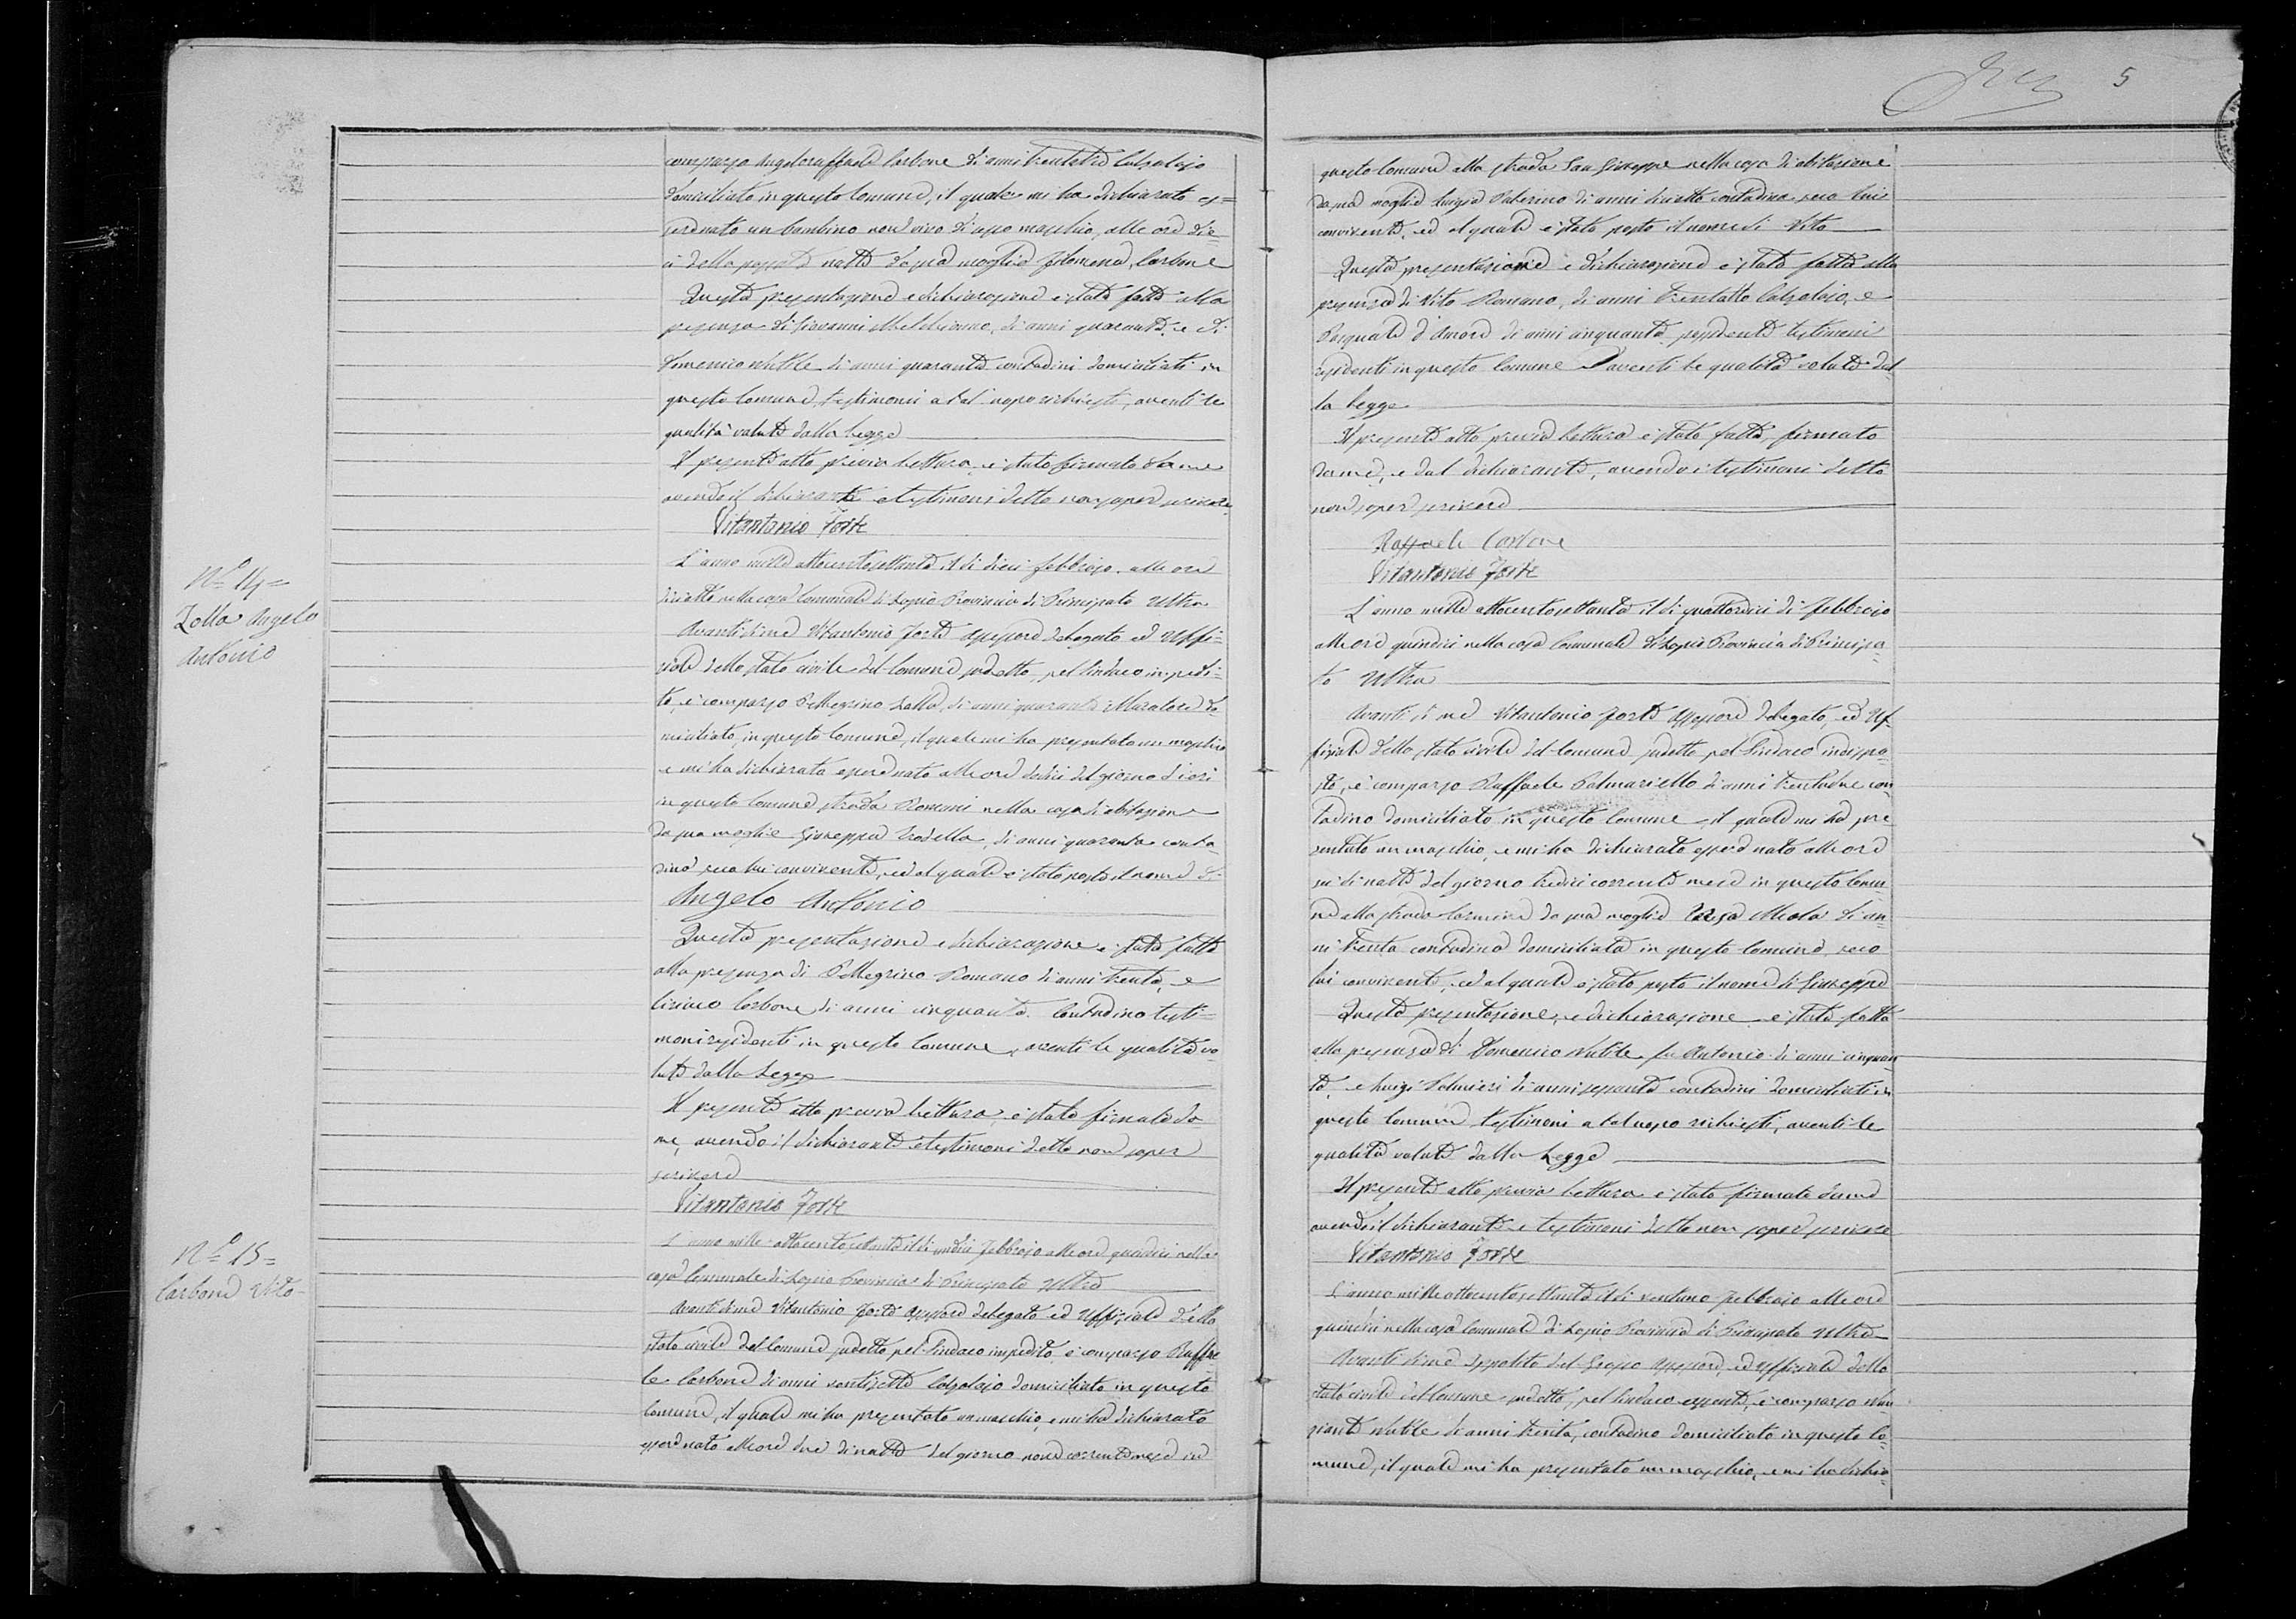 comparso Angeloraffaele Carbone di anni trentatre Calzolajo
domiciliato in questo Comune, il quale mi ha dichiarato es=
ser nato un bambino non vivo di sesso maschio, alle ore die=
ci della passata notte da sua moglie Filomena Carbone
Questa presentazione e dichiarazione è stata fatta alla
presenza di Giovanni di anni quaranta, e di
Domenico Nutile di anni quaranta contadini domiciliati in
questo Comune, testimonii a tal uopo richiesti, aventi le
qualità volute dalla Legge
Il presente atto previa lettura è stato firmato da me
avendo il dichiarante e testimoni detto non saper scrivere
Vitantonio Forte
Nº 14=
Zolla Angelo
Antonio
L'anno mille ottocentosettanta il dì dieci febbrajo alle ore
diciotto nella casa Comunale di Lapio Provincia di Principato Ultra
Avanti di me Vitantonio Forte Assessore delegato ed Uffi=
ziale dello stato civile del Comune sudetto, pel Sindaco impedi=
to, è comparso Pellegrino Zolla, di anni quaranta Muratore do=
miciliato in questo Comune, il quale mi ha presentato un maschio
e mi ha dichiarato esser nato alle ore dodici del giorno di ieri
in questo Comune strada Romani nella casa di abitazione
da sua moglie Giuseppa di anni quaranta conta=
dina seco lui convivente, ed al quale è stato posto il nome di
Angelo Antonio
Questa presentazione e dichiarazione è stata fatta
alla presenza di Pellegrino Romano di anni trenta, e
Ciriaco Carbone di anni cinquanta Contadino testi=
moni residenti in questo Comune, aventi le qualità vo=
lute dalla Legge
Il presente atto previa lettura, è stato firmato da
me, avendo il dichiarante e testimoni detto non saper
scrivere
Vitantonio Forte
Nº 15=
Carbone Vito
L'anno mille ottocentosettanta il dì undici febbrajo alle ore quindici nella
casa Comunale di Lapio Provincia di Principato Ultra
Avanti di me Vitantonio Forte Assessore delegato ed Uffiziale dello
stato civile del Comune sudetto pel Sindaco impedito, è comparso Raffae=
le Carbone di anni ventisette Calzolajo domiciliato in questo
Comune, il quale mi ha presentato un maschio, e mi ha dichiarato
esser nato alle ore due di notte del giorno nove corrente mese in
5
questo Comune alla strada San Giuseppe nella casa di abitazione
da sua moglie Luigia di anni diciotto contadina seco lui
convivente, ed al quale è stato posto il nome di Vito
Questa presentazione e dichiarazione è stata fatta alla
presenza di Vito Romano, di anni trentotto Calzolajo, e
Pasquale d'Amore di anni cinquanta testimoni
residenti in questo Comune aventi le qualità volute dal=
la Legge
Il presente atto previa lettura è stato fatto, firmato
da me, e dal dichiarante, avendo i testimoni detto
non saper scrivere
Raffaele Carbone
Vitantonio Forte
L'anno mille ottocentosettanta il dì quattordici di Febbrajo
alle ore quindici nella casa Comunale di Lapio Provincia di Principa=
to Ultra
Avanti di me Vitantonio Forte Assessore delegato, ed Uf=
fiziale dello stato civile del Comune sudetto, pel Sindaco indispo=
sto, è comparso Raffaele Palmariello di anni trentadue con=
tadino domiciliato in questo Comune, il quale mi ha pre=
sentato un maschio, e mi ha dichiarato esser nato alle ore
sei di notte del giorno tredici corrente mese in questo Comu=
ne alla strada Carmine da sua moglie Teresa Meola di an=
ni trenta contadina domiciliata in questo Comune, seco
lui convivente, ed al quale è stato posto il nome di Giuseppe
Questa presentazione, e dichiarazione è stata fatta
alla presenza di Domenico Nutile fu Antonio di anni cinquan=
ta, e Luigi Palmieri di anni sessanta contadini domiciliati in
questo Comune testimoni a tal uopo richiesti, aventi le
qualità volute dalla Legge
Il presente atto previa lettura è stato firmato da me
avendo il dichiarante e testimoni detto non saper scrivere
Vitantonio Forte
L'anno mille ottocentosettanta il dì ventuno febbrajo alle ore
quindici nella casa Comunale di Lapio Provincia di Principato Ultra
Avanti di me Ippolito del Grosso Assessore, ed Uffiziale dello
stato civile del Comune sudetto, pel Sindaco assente, è comparso Nun=
ziante Nutile di anni trenta, contadino domiciliato in questo Co=
mune, il quale mi ha presentato un maschio, e mi ha dichia=